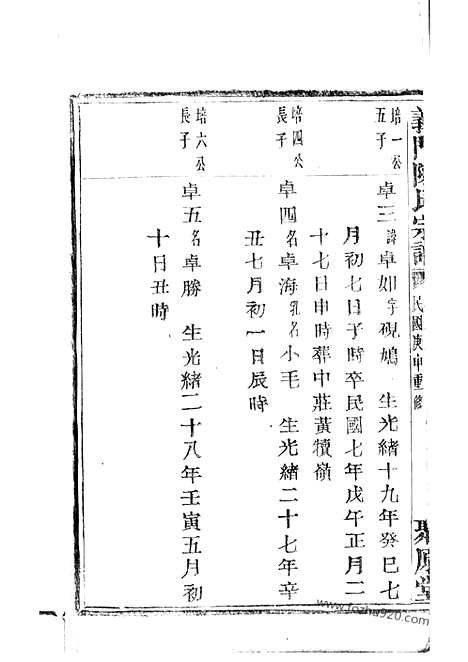 義門陳氏宗譜
民國庚申重修
聚原堂
培一公
五子
卓三諱卓如字硯鳩 生光緒十九年癸巳七
月初七日子時卒民國七年戊午正月二
十七日申時葬中莊黃犢嶺
培四公
長子
卓四名卓海乳名小毛 生光緒二十七年辛
丑七月初一日辰時
培六公
長子
卓五名卓勝 生光緒二十八年壬寅五月初
十日丑時
www.fozhu920.com